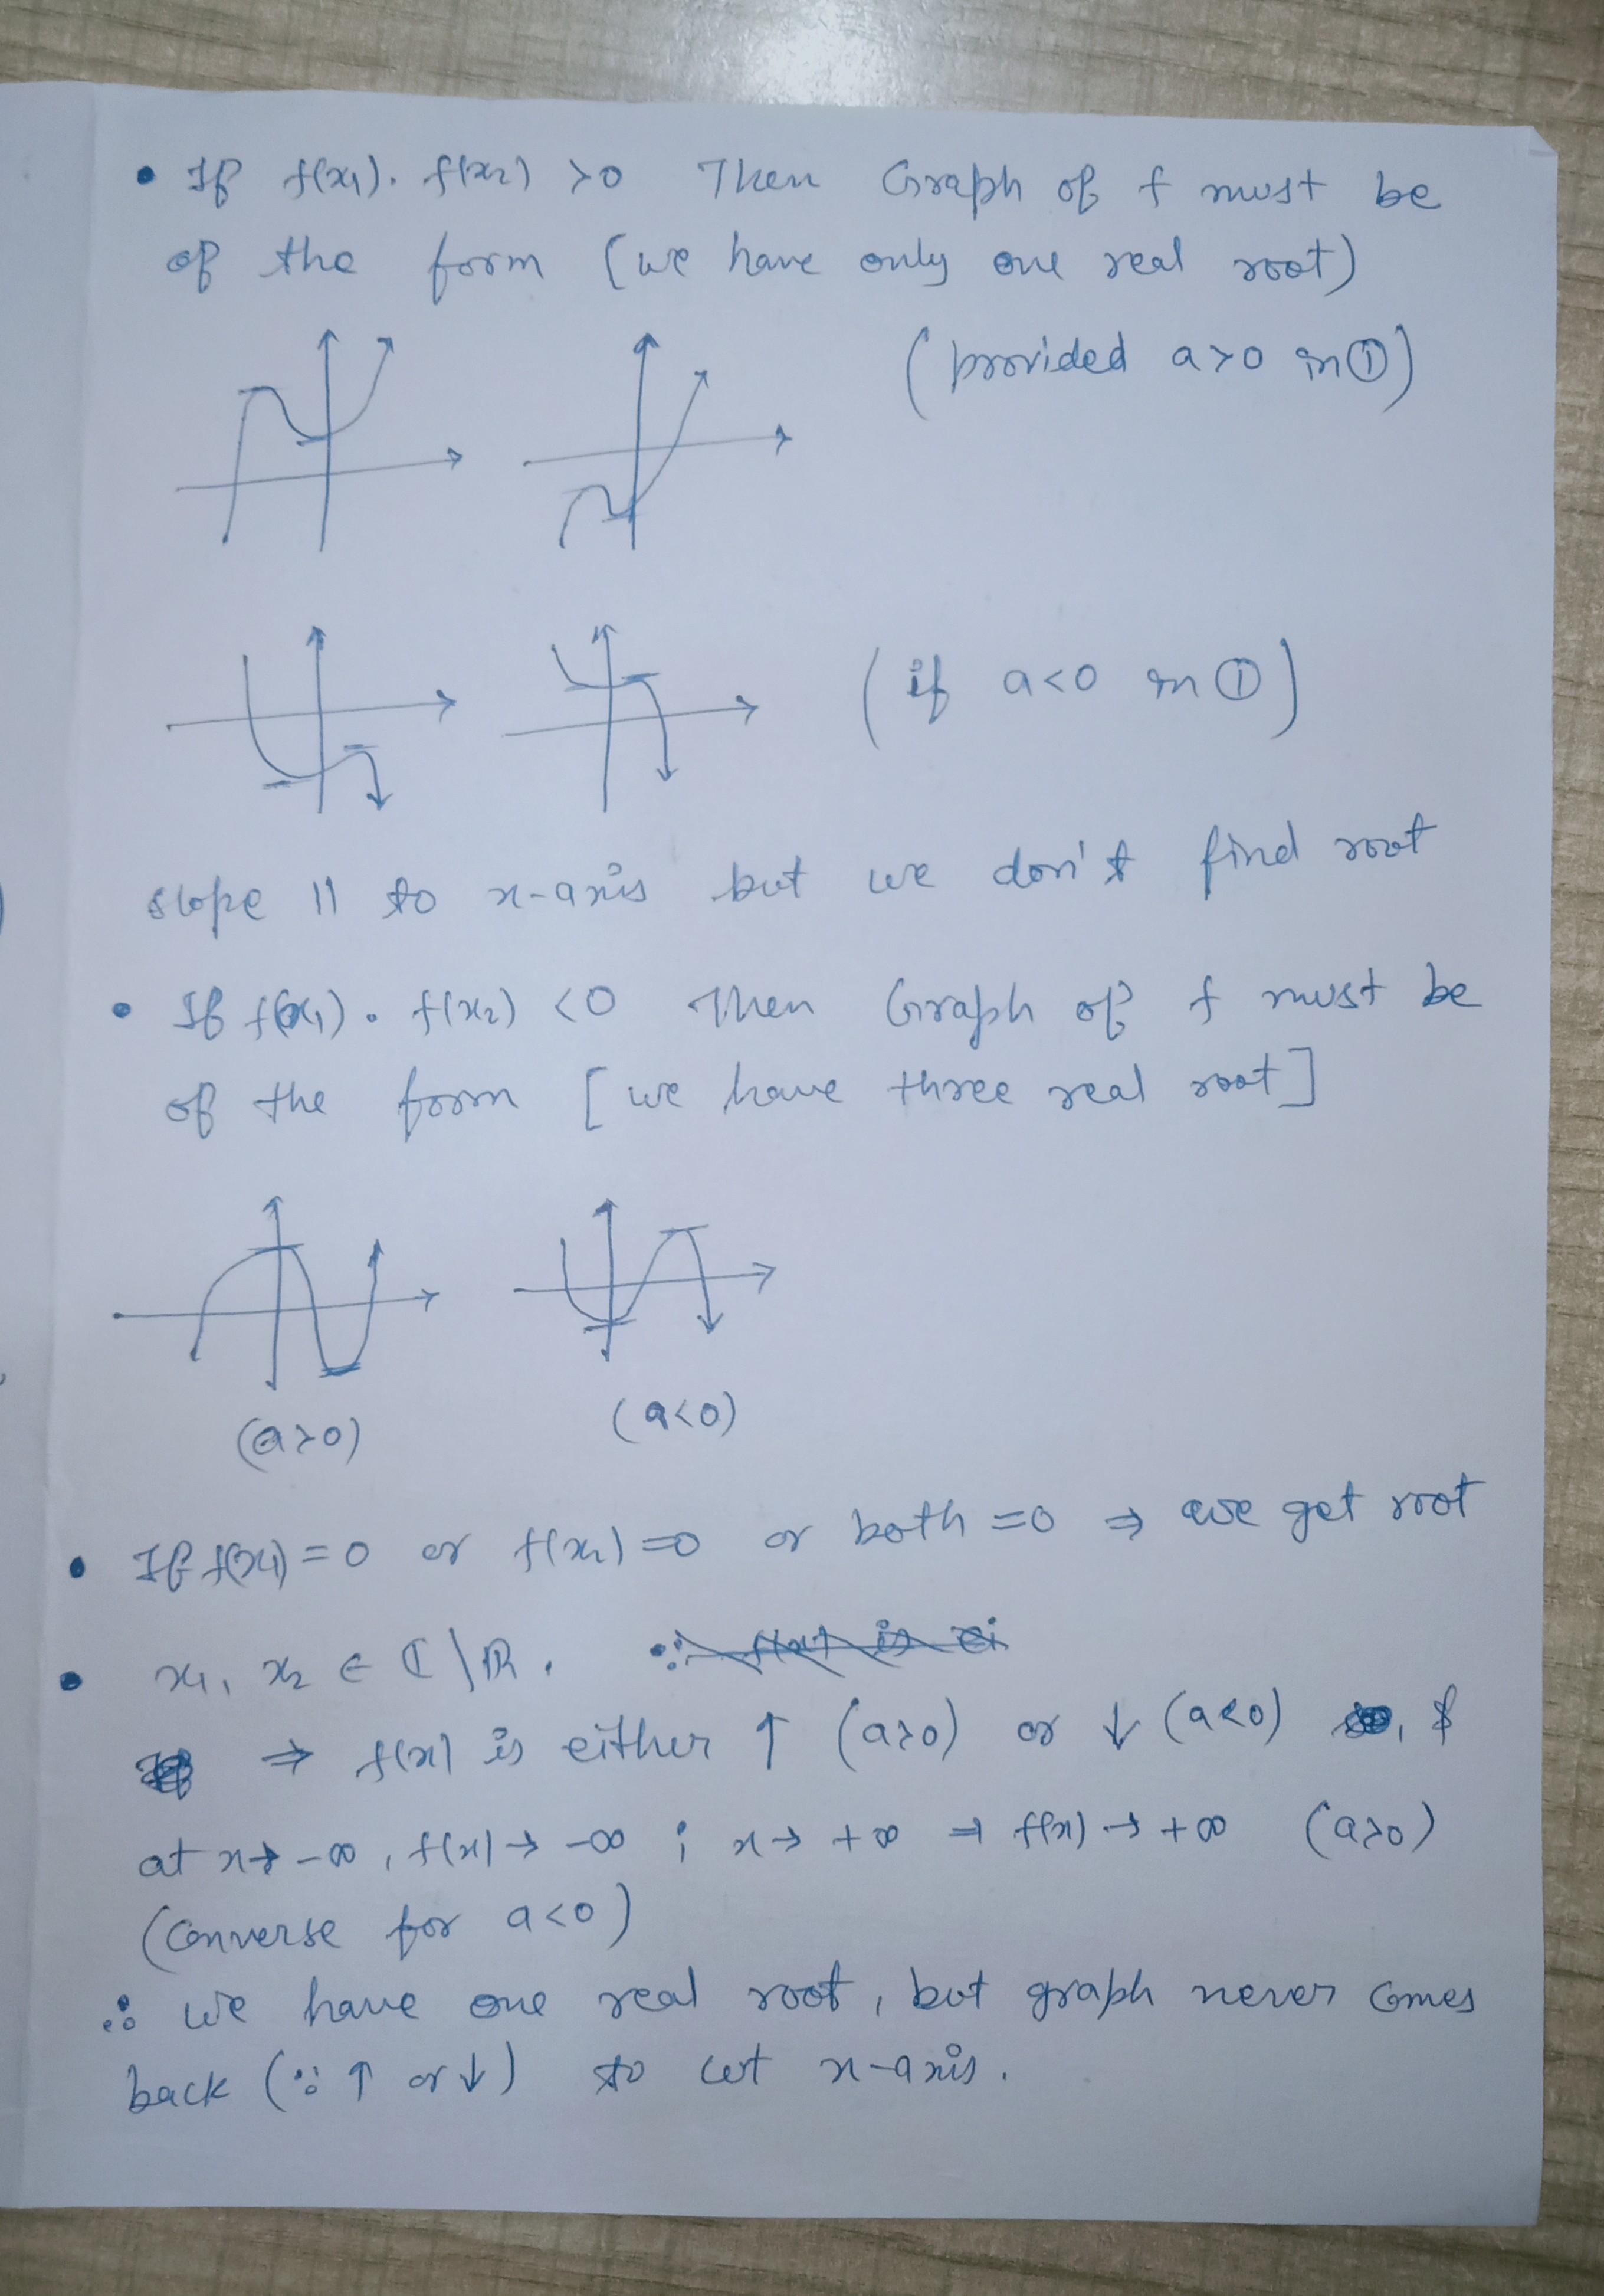 • If f(x₁). f(x₂) >0 Then Graph of f must be
of the form (we have only one real root)
(provided a>0 in ①)
(if a<0 in ①)
slope || to x-axis but we don't find root
• If f(x₁). f(x₂) <0 Then Graph of f must be
of the form [we have three real root]
(a>0) (a<0)
• If f(x₁)=0 or f(x₂)=0 or both =0 ⇒ we get root
• x₁, x₂ ∈ ℂ\ℝ. ∵ f(x) is
⇒ f(x) is either ↑ (a>0) or ↓ (a<0) , &
at x→-∞, f(x)→ -∞ ; x→ +∞ ⇒ f(x)→ +∞ (a>0)
(Converse for a<0)
∴ we have one real root, but graph never comes
back (∵ ↑ or ↓) to cut x-axis.